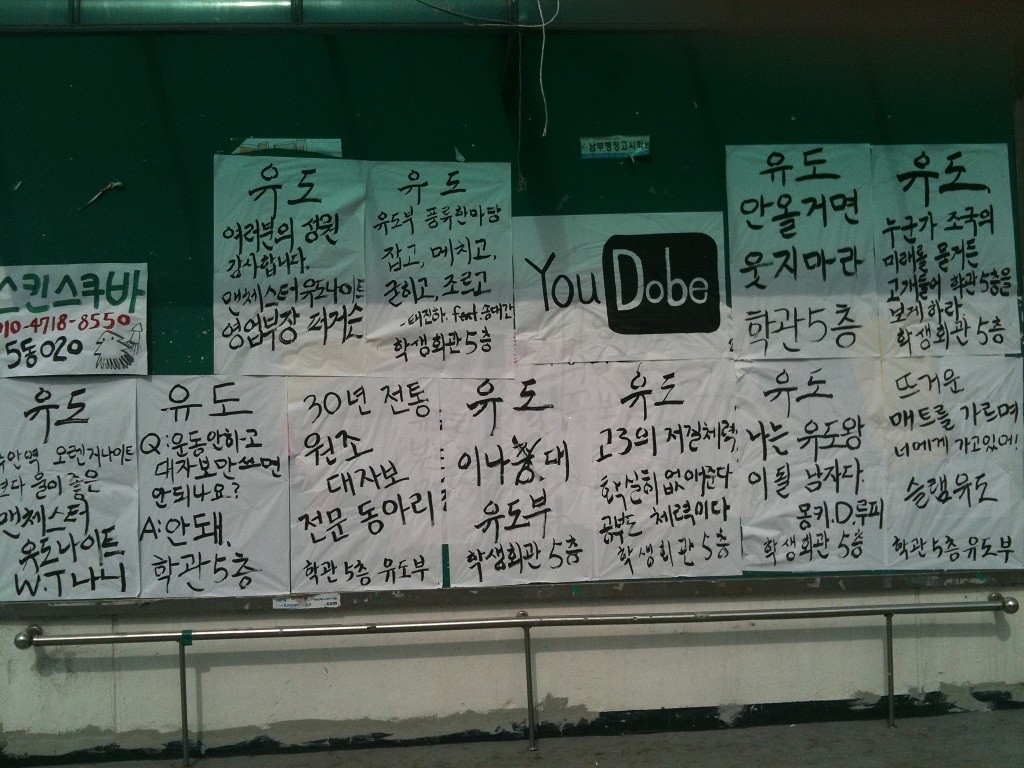 남부행정고시학
유도
여러분의 성원
감사합니다.
맨체스터유도나이트
영업부장 퍼거슨
유도
유도부 풍류한마당
잡고, 메치고,
굳히고, 조르고
학생회관 5층
YouDobe
유도
안올거면
웃지마라
학관5층
유도
누군가 조국의
미래를 묻거든
고개들어 학관 5층을
보게하라.
학생회관 5층
스킨스쿠바
010-4718-8550
5동020
유도
오렌지나이트
보다 물이 좋은
맨체스터
유도나이트
W.T 나니
유도
Q:운동안하고
대자보만쓰면
안되나요?
A:안돼.
학관5층
30년 전통
원조
대자보
전문 동아리
학관 5층 유도부
유도
이나층.대
유도부
학생회관 5층
유도
고3의 저질체력,
확실히 없애준다
공부도 체력이다
학생회관 5층
유도
나는 유도왕
이 될 남자다.
몽키.D.루피
학생회관 5층
뜨거운
매트를 가르며
너에게 가고있어!
슬램유도
학관 5층 유도부